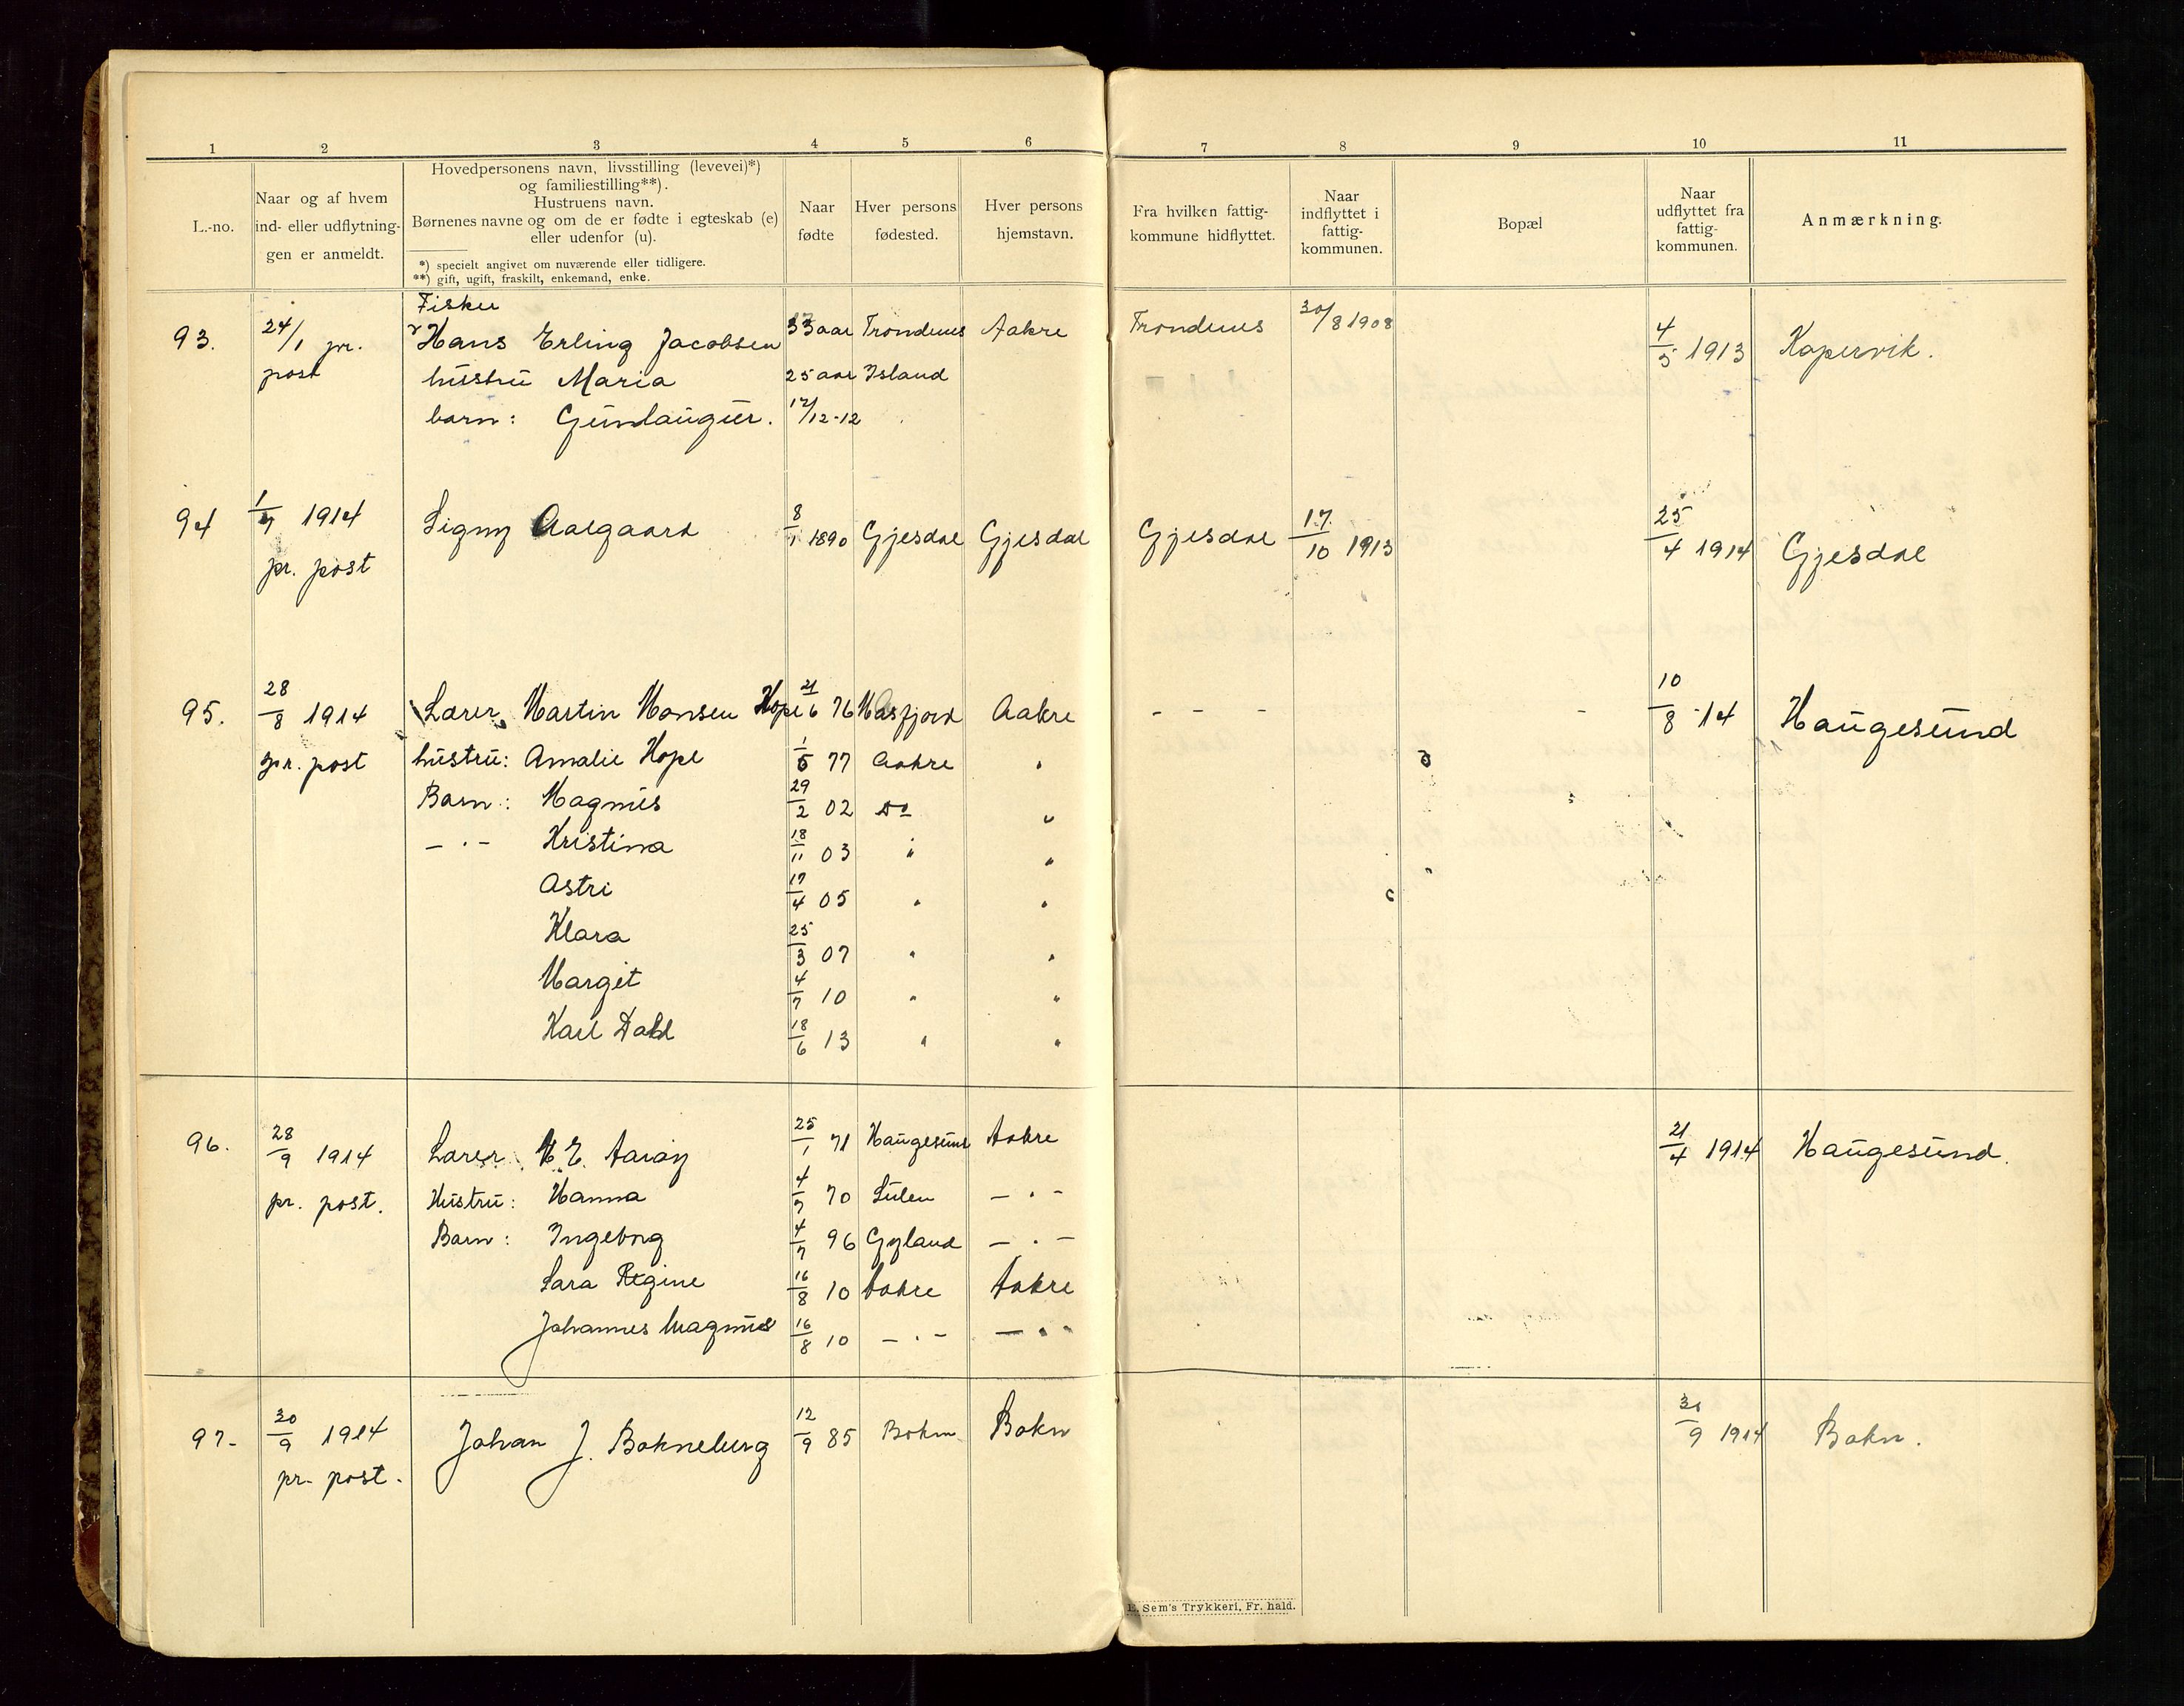 1 2 3 4 5 6 7 8 9 10 11
L.-no.
Naar og af hvem
ind- eller udflytnin-
gen er anmeldt.
Hovedpersonens navn, livsstilling (levevei)*)
og familiestilling**).
Hustruens navn.
Børnenes navne og om de er fødte i egteskab (e)
eller udenfor (u).
*) specielt angivet om nuværende eller tidligere.
**) gift, ugift, fraskilt, enkemand, enke.
Naar
fødte
Hver persons
fødested.
Hver persons
hjemstavn.
Fra hvilken fattig-
kommune hidflyttet.
Naar
indflyttet i
fattig-
kommunen.
Bopæl
Naar
udflyttet fra
fattig-
kommunen.
Anmærkning.
Fisker
93. 24/1 pr. Hans Erling Jacobsen 33 aar Trondenes Aakre Trondenes 30/8 1908 4/5 1913 Kopervik.
post hustru Maria 25 aar Island
barn: Gunlaugur. 12/12-12
94 1/7 1914 Signy Aalgaard 8/1 1890 Gjesdal Gjesdal Gjesdal 17/10 1913 25/4 1914 Gjesdal
pr. post
95. 28/8 1914 Lærer Martin Monsen Hope 21/6 76 Masfjord Aakre - - - - 10/8 -14 Haugesund
pr. post hustru: Amalie Hope 1/5 77 Aakre "
Barn: Magnus 29/2 02 Do "
- " - Kristina 18/11 03 " "
Astri 17/4 05 " "
Klara 25/3 07 " "
Margit 4/7 10 " "
Karl Dahl 18/6 13 " "
96. 28/9 1914 Lærer M. E. Aarøy 25/1 71 Haugesund Aakre 21/4 1914 Haugesund.
pr. post. Hustru: Hanna 4/7 70 Sulen - " -
Barn: Ingeborg 4/7 96 Gyland - " -
Sara Regine 16/8 10 Aakre Aakre
Johannes Magnus 16/8 10 - " - - " -
97. 30/9 1914 Johan J. Bokneberg 12/9 85 Bokn Bokn 30/9 1914 Bokn.
pr. post.
E. Sem's Trykkeri, Fr. hald.